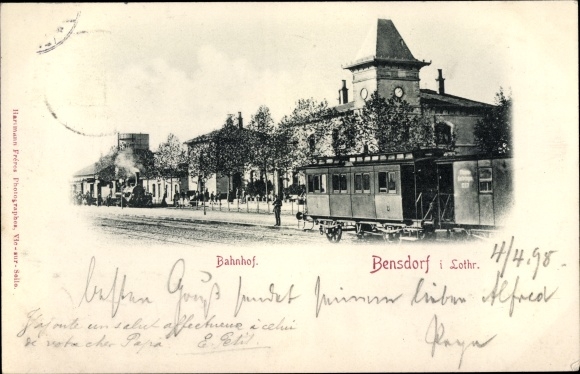 Hartmann Frères Photographes, Vic-sur-Seille.
Bahnhof.
Bensdorf i Lothr.
4/4.98.
besten Gruß sendet seinem lieben Alfred
Papa
J'ajoute un salut affectueux à celui
de notre cher Papa